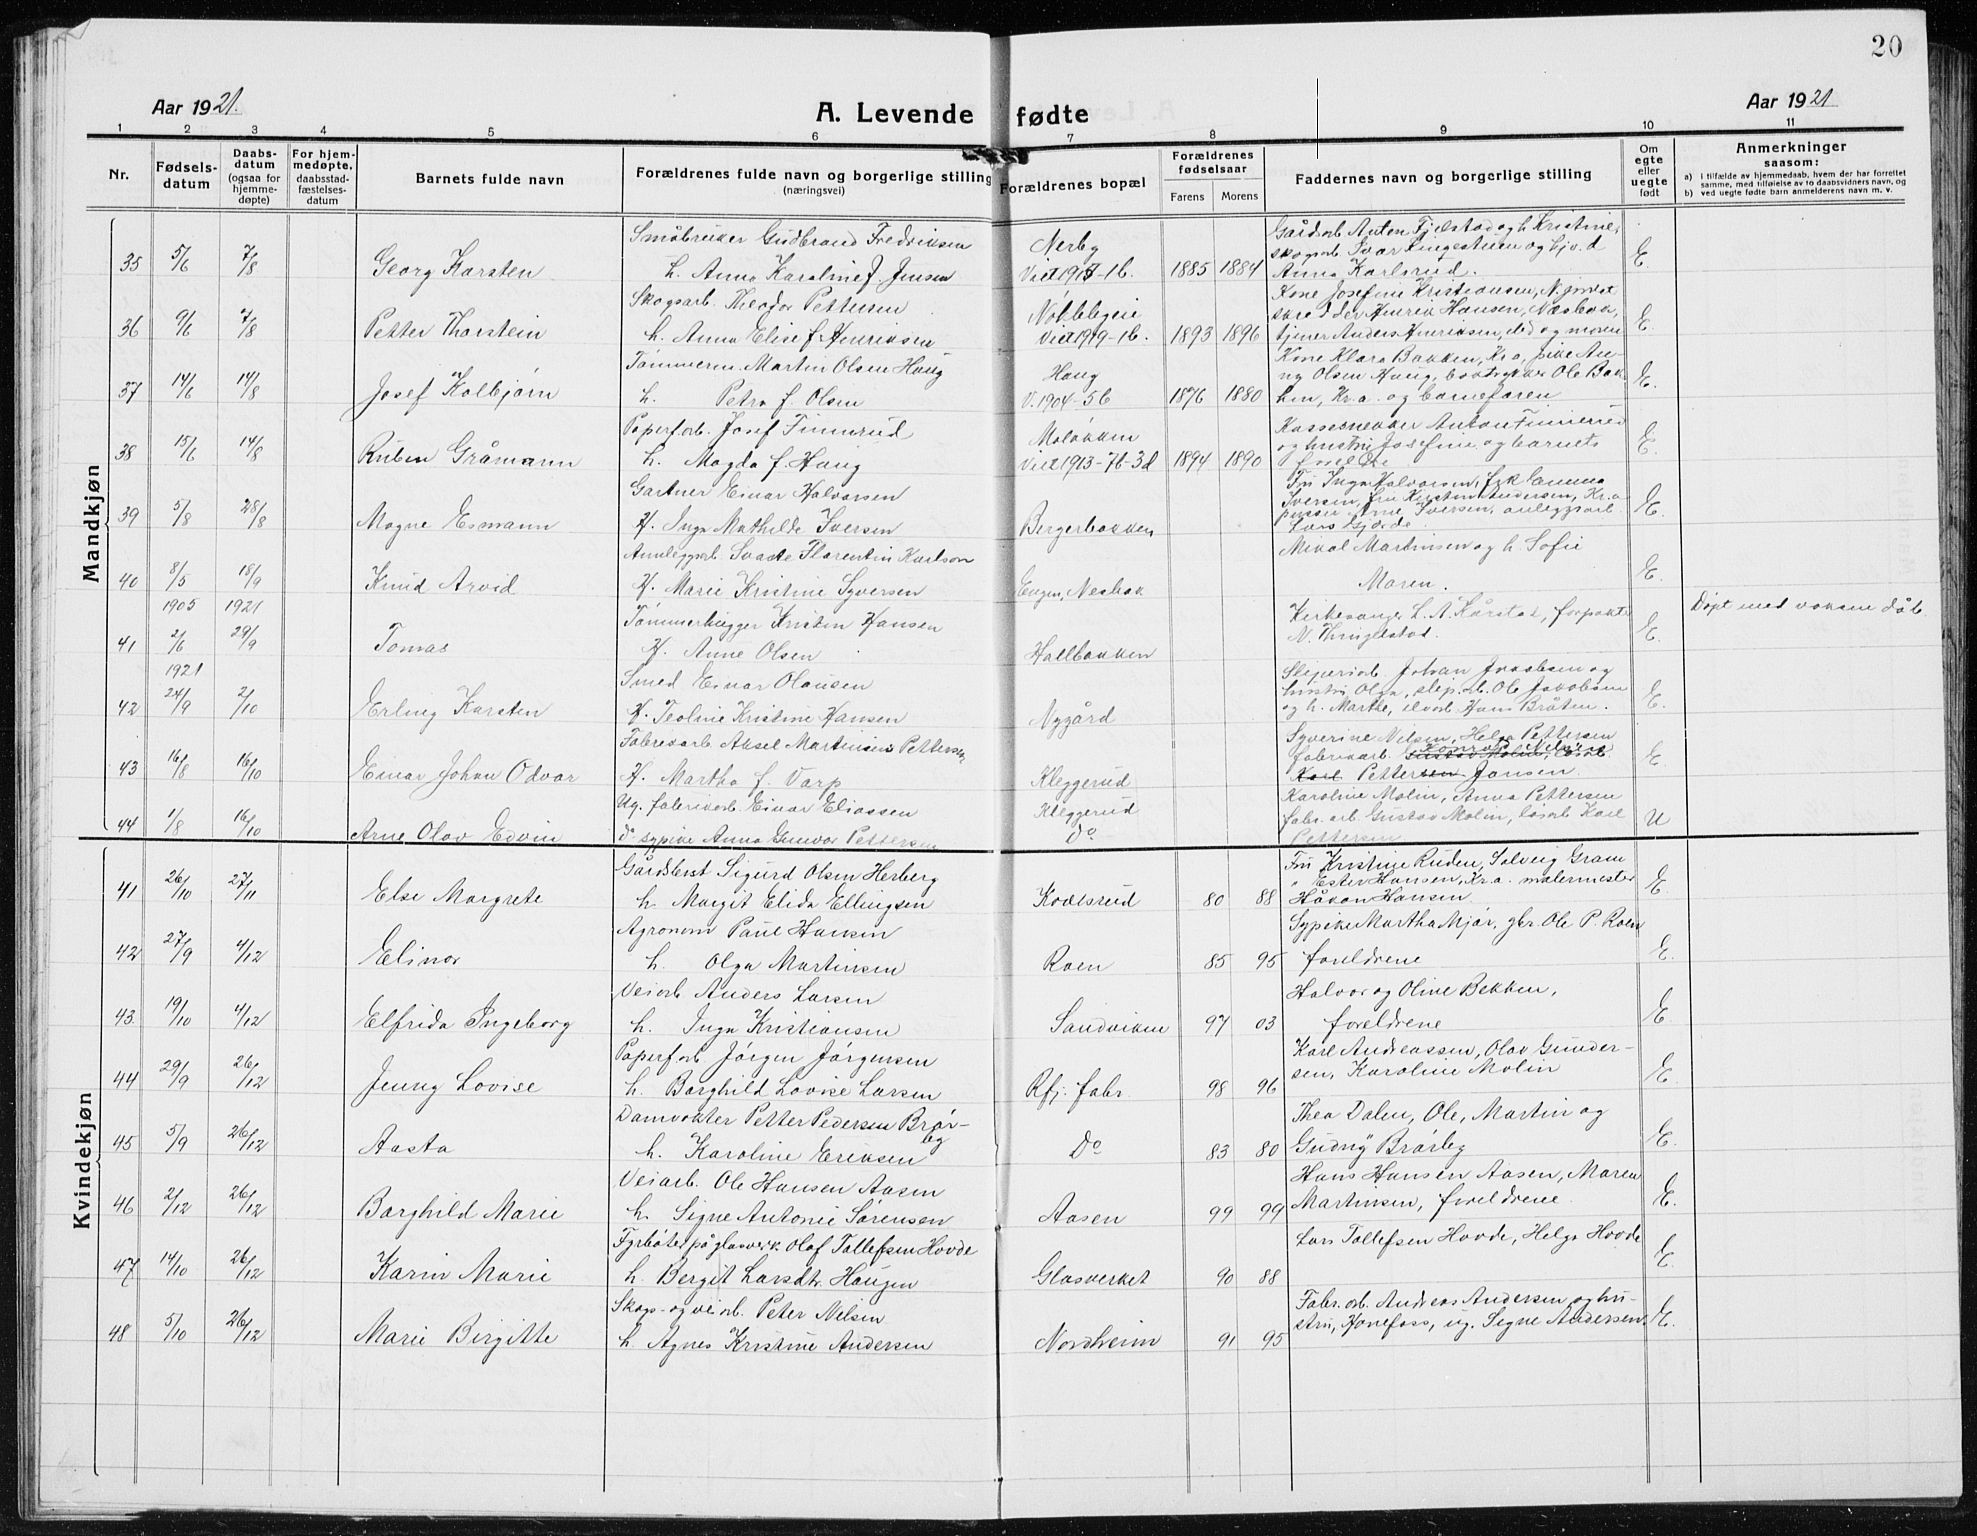 20
Aar 1921.
A. Levende fødte
Aar 1921
1 2 3 4 5 6 7 8 9 10 11
Nr.
Fødsels-
datum
Daabs-
datum
(ogsaa for
hjemme-
døpte)
For hjem-
medøpte,
daabsstad-
fæstelses-
datum
Barnets fulde navn
Forældrenes fulde navn og borgerlige stilling
(næringsvei)
Forældrenes bopæl
Forældrenes
fødselsaar
Farens Morens
Faddernes navn og borgerlige stilling
Om
egte
eller
uegte
født
Anmerkninger
saasom:
a) i tilfælde av hjemmedaab, hvem der har forrettet
samme, med tilføielse av to daabsvidners navn, og
b) ved uegte fødte barn anmelderens navn m. v.
Mandkjøn
Småbruker Gudbrand Fredriksen
Gårdarb Anton Fjelstad og h. Kristine,
35 5/6 7/8 Georg Karsten h. Anna Karoline f. Jensen Nerby 1885 1884 E.
Anna Karlsrud.
Skogsarb. Theodor Pettersen
Kone Josefine Kristiansen,
36 9/6 7/8 Petter Thorstein h. Anna Elise f. Henriksen Viet 1919-16. 1893 1896 E.
tjener Anders Henriksen, do og moren
Tømmerm. Martin Olsen Haug
Kone Klara Bakken, Kr.a, pike An-
37 14/6 14/8 Josef Kolbjørn h. Petra f. Olsen Haug V. 1904-56 1876 1880 ny Olsen Haug, Ole Bak- E.
ken, Kr.a. og barnefaren
Paperf.arb. Josef Finnerud
Anton Finnerud
38 15/6 14/8 Ruben Gråmann h. Magda f. Haug Viet 1913-76-3d 1894 1890 og hustru Josefine og barnets E.
Gartner Einar Halvorsen
Fru Inga Halvorsen, frk Emma
39 5/8 28/8 Magne Esmann H. Inga Mathilde Iversen Bergerbakken Iversen, fru Kirsten Andersen, Kr.a E.
Iversen, anleggsarb.
Anleggsarb. Svante Florentin Karlson
Mikal Martinsen og h. Sofie
40 8/5 18/9 Knud Arvid H. Marie Kristine Syversen Engen, Nesbak Maren. E.
1905 1921 Tømmerhugger Kristen Hansen
Kirkesanger L. A. Kårstad, forpakter
Døpt med voksen dåb.
41 2/6 29/9 Tomas H. Anne Olsen Hallbakken N. Thinglestad. E.
1921 Smed Einar Olausen
Sliperiarb. Johan Jakobsen og
42 24/9 2/10 Erling Karsten H. Teoline Kristine Hansen Nygård hustru Olga, slip.arb. Ole Jakobsen E.
og h. Marthe, elvarb Hans Bråten.
Fabrikarb. Aksel Martinius Pettersen
Syverine Nilsen, Helga Pettersen
43 16/8 16/10 Einar Johan Odvar H. Martha f. Varp Kleggerud fabrikarb. Konrad Nilsen E
Karl Pettersen Jansen.
Ug. fabrikarb. Einar Eliassen Kleggerud
Karoline Molin, Anna Pettersen
44 1/8 16/10 Arne Olav Edvin do sypike Anna Gunvor Pettersen Do fabr. arb. Gustav Molin, Karl U
Pettersen
Kvindekjøn
Gårdbest Sigurd Olsen Herberg
Fru Kristine Ruden, Solveig Gram
41 26/10 27/11 Else Margrete h. Margit Elida Ellingsen 80 88 " Ester Hansen, Kr.a. malermester E.
Håkon Hansen
Agronom Paul Hansen
Sypike Martha Mjør, gbr. Ole P. Roen
42 27/9 4/12 Elinor h. Olga Martinsen Roen 85 95 foreldrene E.
Veiarb Anders Larsen
Halvor og Oline Bekken,
43 19/10 4/12 Elfrida Ingeborg h. Inga Kristiansen Sandviken 97 03 foreldrene E.
Paperf.arb. Jørgen Jørgensen
Karl Andreassen, Olav Gunder-
44 29/9 26/12 Jenny Lovise h. Borghild Lovise Larsen Rfj. fabr. 98 96 sen, Karoline Molin E
Damvokter Petter Pedersen Brør-
by
Thea Dalen, Ole, Martin og
45 5/9 26/12 Aasta h. Karoline Eriksen Do 83 80 Gudny Brørby E.
Veiarb. Ole Hansen Aasen
Hans Hansen Aasen, Maren
46 2/12 26/12 Borghild Marie h. Signe Antonie Sørensen Aasen 99 99 Martinsen, foreldrene. E.
Fyrbøter på glasverk. Olaf Tollefsen Hovde
Lars Tollefsen Hovde, Helga Hovde
47 14/10 26/12 Karin Marie h. Bergit Larsdtr. Haugen Glasverket 90 88 E.
Skogs- og veiarb. Peter Nilsen
Fabr. arb. Andreas Andersen og hu-
48 5/10 26/12 Marie Birgitte h. Agnes Kristine Andersen Nordheim 91 95 stru, Hønefoss, ug. Signe Andersen. E.